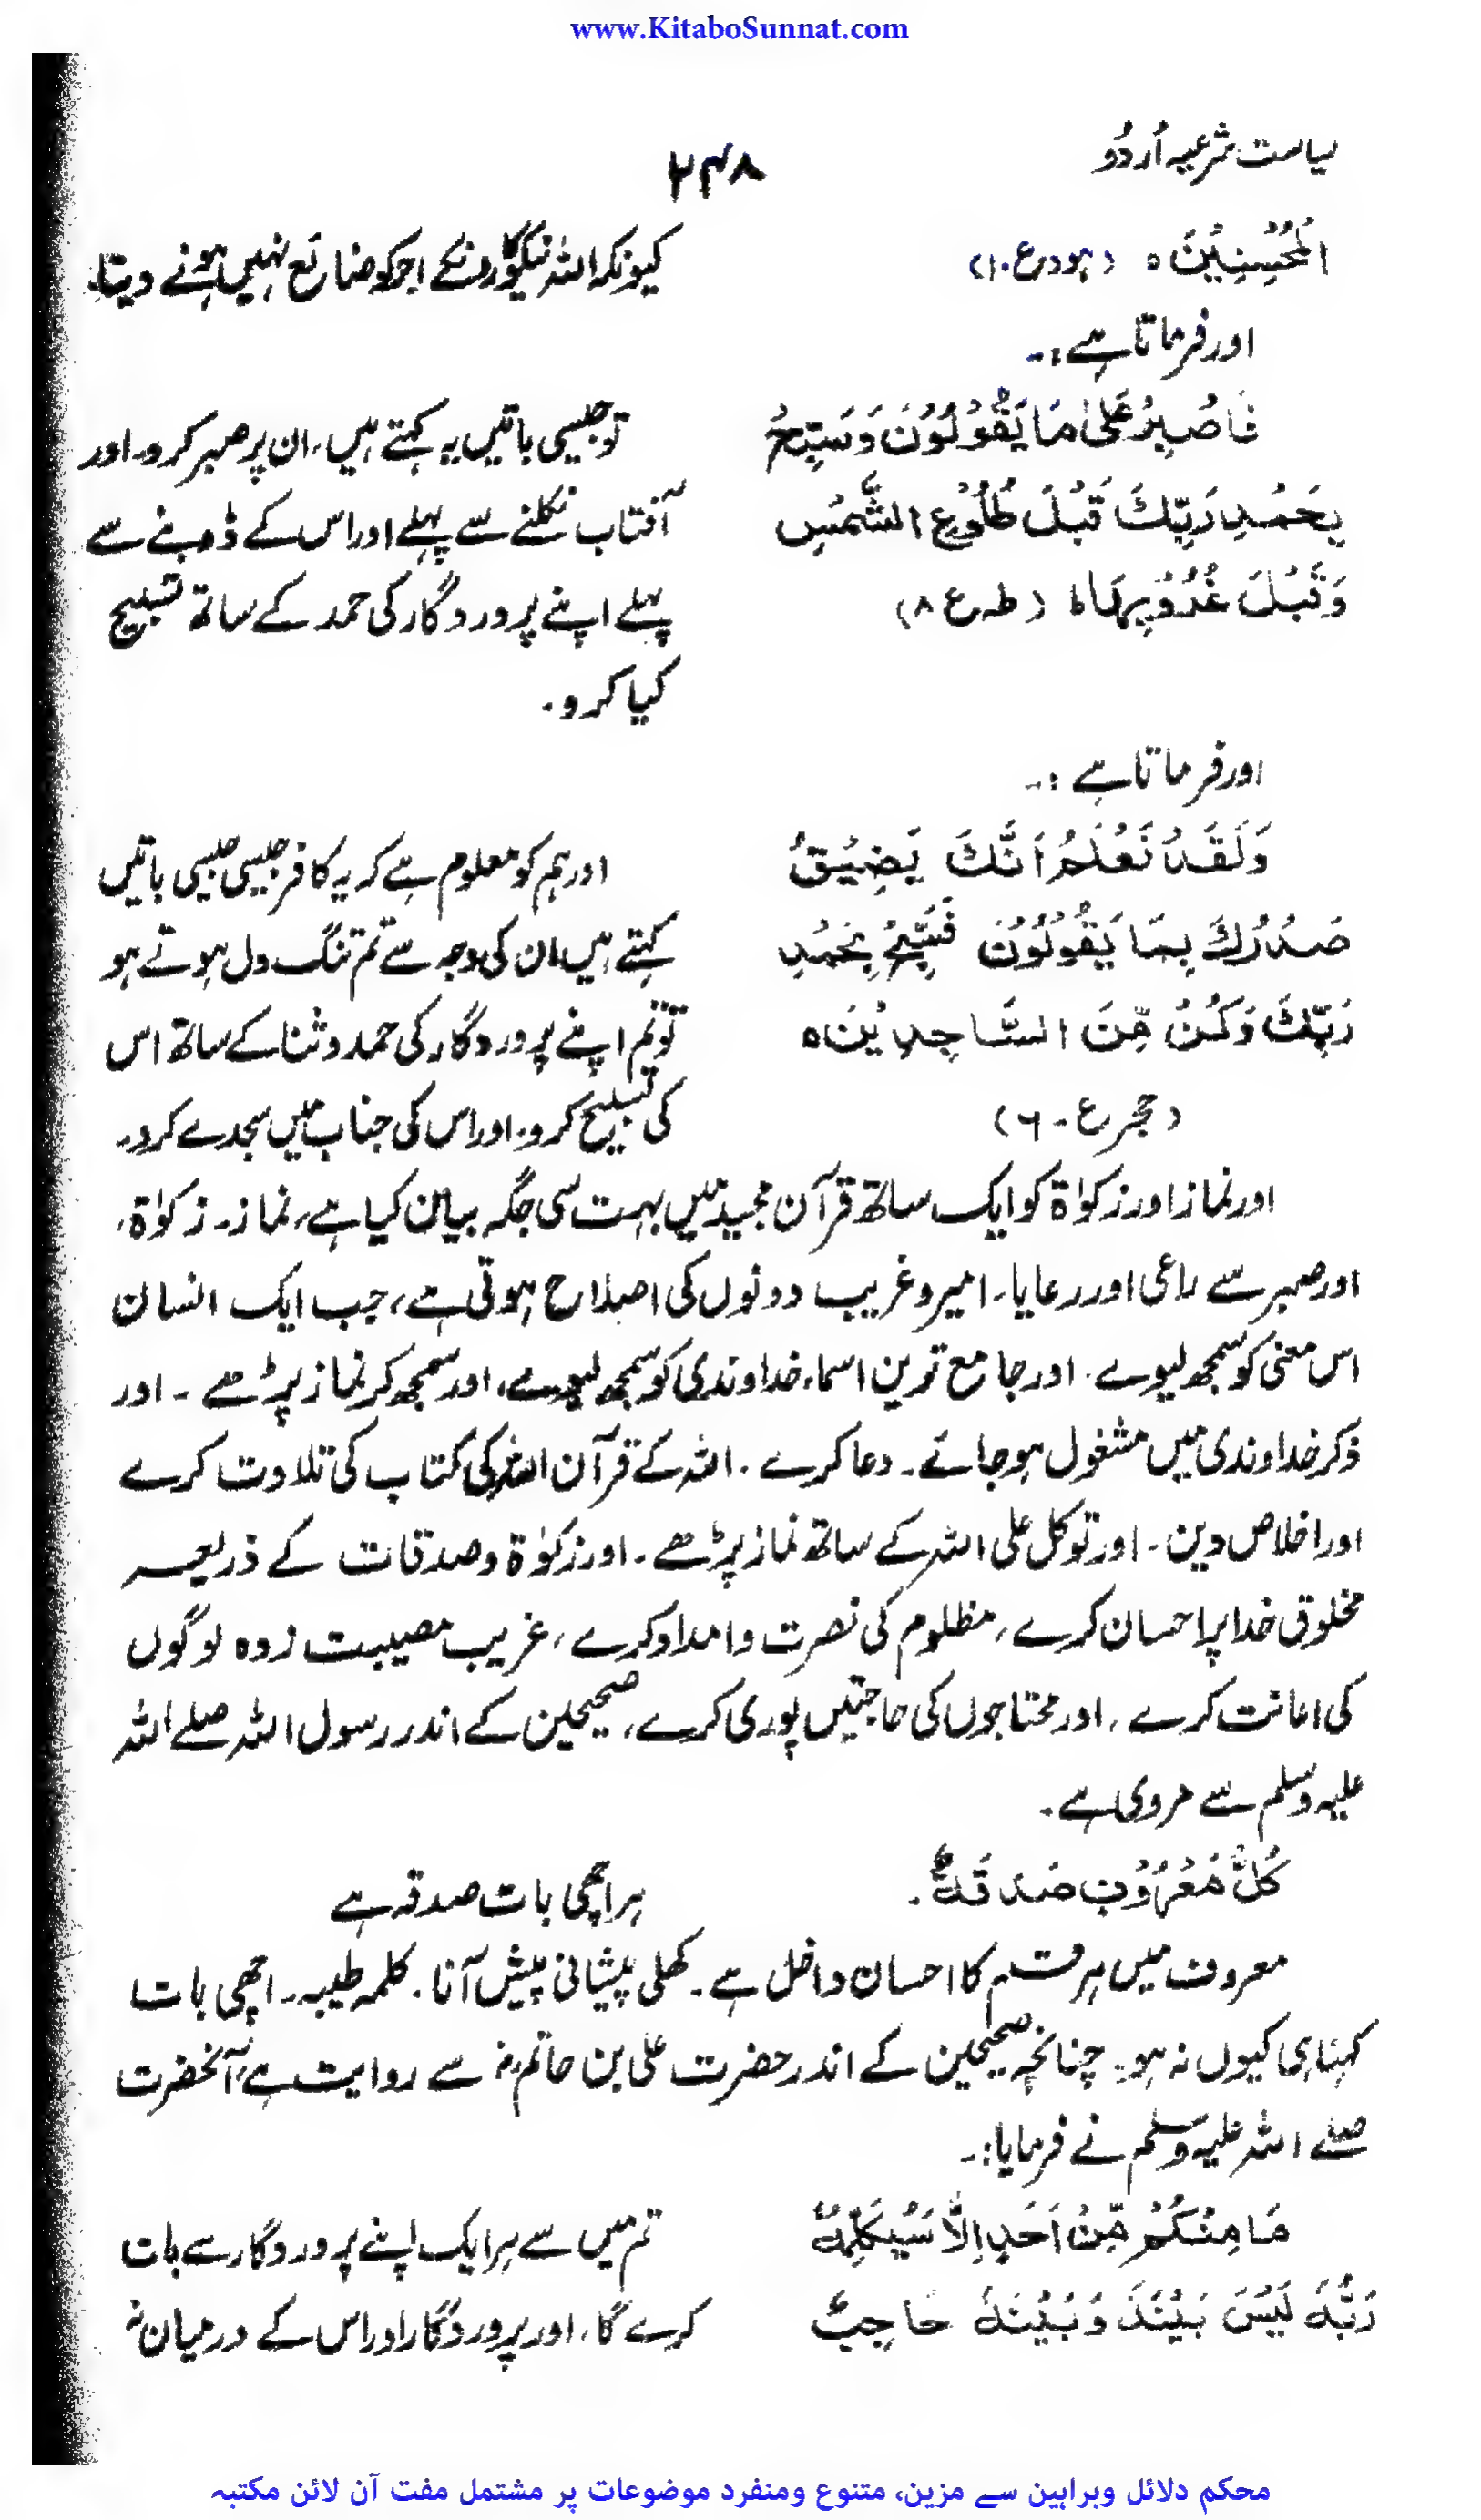 www.KitaboSunnat.com
سیاست شرعیہ اُردُو
۲۴۸
الْمُحْسِنِیْنَ ہ (ہود ع۔۱۰)
کیونکہ اللہ نیکوکاروں کے اجر کو ضائع نہیں ہونے دیتا۔
اور فرماتا ہے :۔
فَاصْبِرْ عَلٰی مَا یَقُوْلُوْنَ وَسَبِّحْ
بِحَمْدِ رَبِّكَ قَبْلَ طُلُوْعِ الشَّمْسِ
وَقَبْلَ غُرُوْبِهَا ط (طہ ع ۸)
تو جیسی باتیں یہ کہتے ہیں، ان پر صبر کرو۔ اور
آفتاب نکلنے سے پہلے اور اس کے ڈوبنے سے
پہلے اپنے پروردگار کی حمد کے ساتھ تسبیح
کیا کرو۔
اور فرماتا ہے :۔
وَلَقَدْ نَعْلَمُ اَنَّكَ یَضِیْقُ
صَدْرُكَ بِمَا یَقُوْلُوْنَ فَسَبِّحْ بِحَمْدِ
رَبِّكَ وَكُنْ مِّنَ السَّاجِدِیْنَ ہ
(حجر ع۔ ۶)
اور ہم کو معلوم ہے کہ یہ کافر جیسی جیسی باتیں
کہتے ہیں ان کی وجہ سے تم تنگ دل ہوتے ہو
تو تم اپنے پروردگار کی حمد و ثنا کے ساتھ اس
کی تسبیح کرو۔ اور اس کی جناب میں سجدے کرو۔
اور نماز اور زکوٰۃ کو ایک ساتھ قرآن مجید میں بہت سی جگہ بیان کیا ہے، نماز۔ زکوٰۃ،
اور صبر سے راعی اور رعایا۔ امیر و غریب دونوں کی اصلاح ہوتی ہے، جب ایک انسان
اس معنی کو سمجھ لیوے۔ اور جامع ترین اسماء خداوندی کو سمجھ لیوے، اور سمجھ کر نماز پڑھے ۔ اور
ذکر خداوندی میں مشغول ہو جائے۔ دعا کرے ۔ اللہ کے قرآن اللہ کی کتاب کی تلاوت کرے
اور اخلاص دین ۔ اور توکل علی اللہ کے ساتھ نماز پڑھے ۔ اور زکوٰۃ و صدقات کے ذریعہ
مخلوق خدا پر احسان کرے، مظلوم کی نصرت و امداد کرے، غریب مصیبت زدہ لوگوں
کی اعانت کرے ، اور محتاجوں کی حاجتیں پوری کرے، صحیحین کے اندر رسول اللہ صلے اللہ
علیہ وسلم سے مروی ہے ۔
كُلُّ مَعْرُوْفٍ صَدَقَةٌ ۔
ہر اچھی بات صدقہ ہے
معروف میں ہر قسم کا احسان داخل ہے ۔ کھلی پیشانی پیش آنا ۔ کلمہ طیبہ ۔ اچھی بات
کہنا ہی کیوں نہ ہو۔ چنانچہ صحیحین کے اندر حضرت علی بن حاتم رض سے روایت ہے، آنحضرت
صلے اللہ علیہ وسلم نے فرمایا :۔
مَا مِنْكُمْ مِّنْ اَحَدٍ اِلَّا سَیُكَلِّمُهٗ
رَبُّهٗ لَیْسَ بَیْنَهٗ وَبَیْنَهٗ حَاجِبٌ
تم میں سے ہر ایک اپنے پروردگار سے بات
کرے گا، اور پروردگار اور اس کے درمیان نہ
محکم دلائل وبراہین سے مزین، متنوع ومنفرد موضوعات پر مشتمل مفت آن لائن مکتبہ